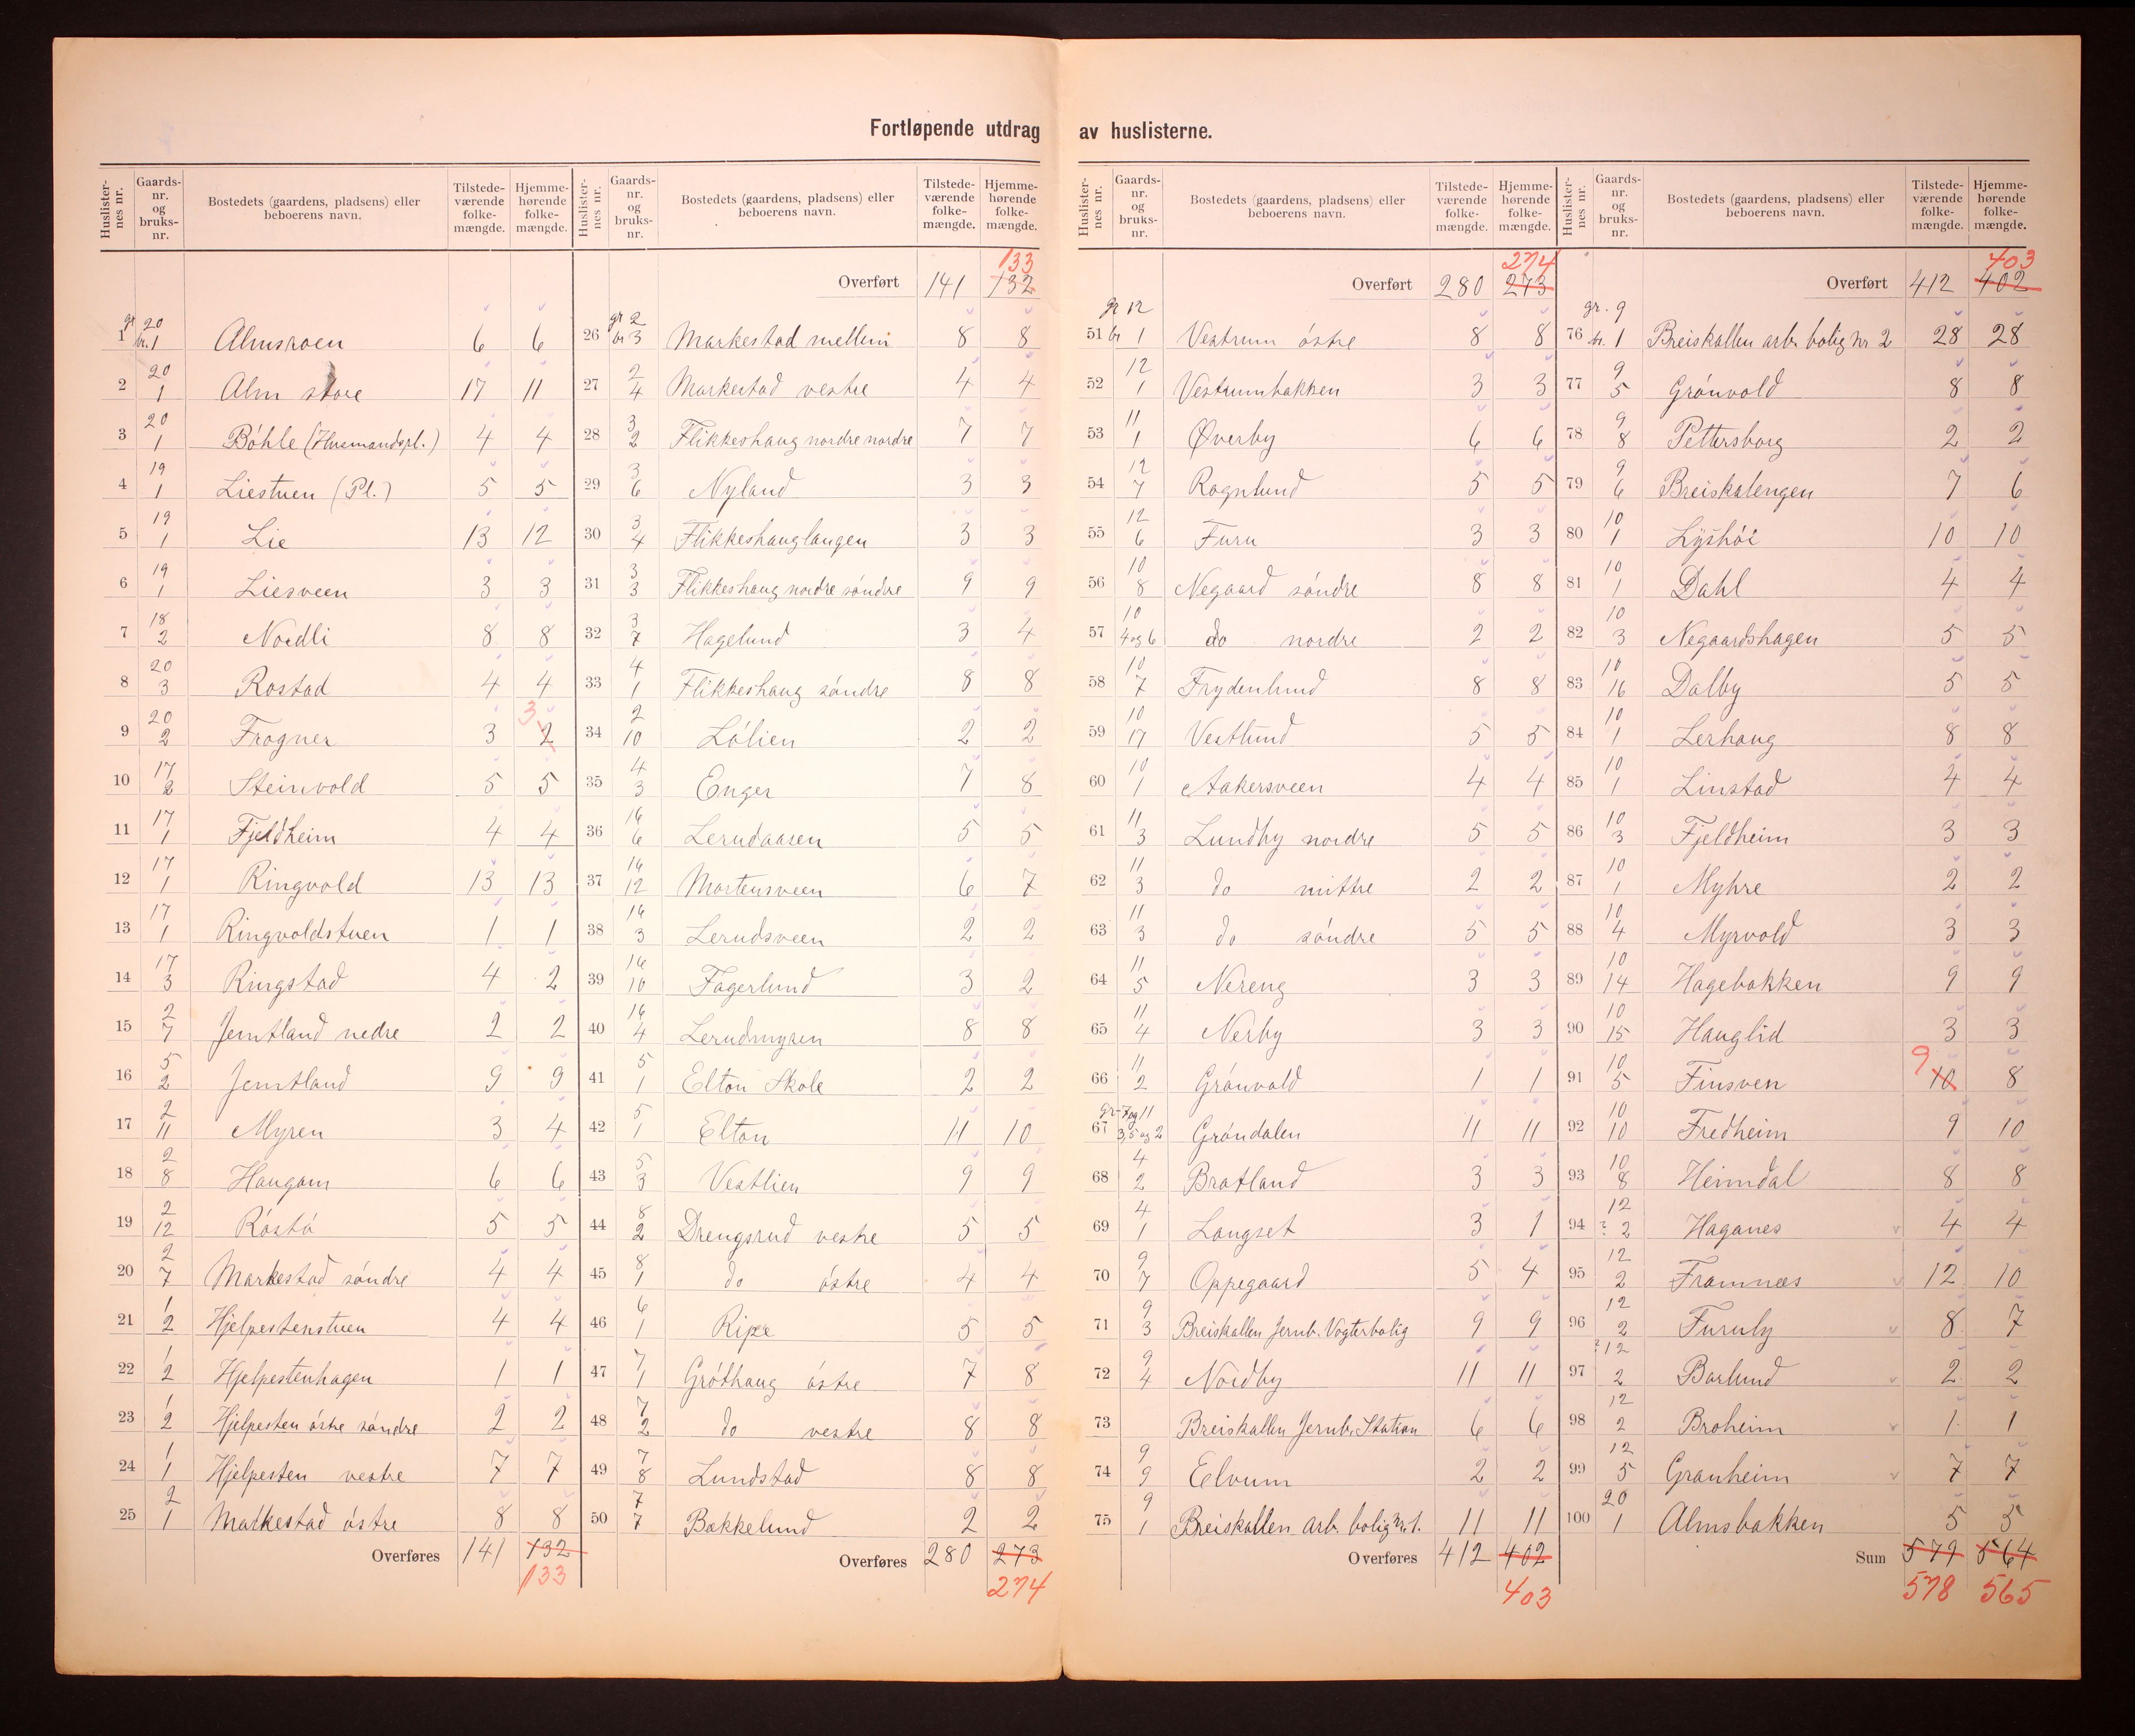 Fortløpende utdrag av huslisterne.
Huslisternes nr. Gaards-nr. og bruks-nr. Bostedets (gaardens, pladsens) eller beboerens navn. Tilstedeværende folkemængde. Hjemmehørende folkemængde.
1 gr 20 br. 1 Almsroen 6 6
2 20 1 Alm store 17 11
3 20 1 Böhle (Husmandspl.) 4 4
4 19 1 Liestuen (Pl.) 5 5
5 19 1 Lie 13 12
6 19 1 Liesveen 3 3
7 18 2 Nordli 8 8
8 20 3 Rostad 4 4
9 20 2 Frogner 3 2 3
10 17 2 Steinvold 5 5
11 17 1 Fjeldheim 4 4
12 17 1 Ringvold 13 13
13 17 1 Ringvoldstuen 1 1
14 17 3 Ringstad 4 2
15 2 7 Jemtland nedre 2 2
16 5 2 Jemtland 9 9
17 2 11 Myren 3 4
18 2 8 Haugom 6 6
19 2 12 Röstö 5 5
20 2 7 Markestad söndre 4 4
21 1 2 Hjelpestenstuen 4 4
22 1 2 Hjelpestenhagen 1 1
23 1 2 Hjelpesten östre söndre 2 2
24 1 1 Hjelpesten vestre 7 7
25 2 1 Markestad östre 8 8
Overføres 141 132
133
Huslisternes nr. Gaards-nr. og bruks-nr. Bostedets (gaardens, pladsens) eller beboerens navn. Tilstedeværende folkemængde. Hjemmehørende folkemængde.
133
Overført 141 132
26 gr 2 br 3 Markestad mellem 8 8
27 2 4 Markestad vestre 4 4
28 3 2 Flikkeshaug nordre nordre 7 7
29 3 6 Nyland 3 3
30 3 4 Flikkeshauglangen 3 3
31 3 3 Flikkeshaug nordre söndre 9 9
32 3 7 Hagelund 3 4
33 4 1 Flikkeshaug söndre 8 8
34 2 10 Lölien 2 2
35 4 3 Enger 7 8
36 16 6 Lerudaasen 5 5
37 16 12 Mortensveen 6 7
38 16 3 Lerudsveen 2 2
39 16 10 Fagerlund 3 2
40 16 4 Lerudmyren 8 8
41 5 1 Elton Skole 2 2
42 5 1 Elton 11 10
43 5 3 Vestlien 9 9
44 8 2 Drengsrud vestre 5 5
45 8 1 do östre 4 4
46 6 1 Ripe 5 5
47 7 1 Gröthaug östre 7 8
48 7 2 do vestre 8 8
49 7 8 Lundstad 8 8
50 7 7 Bækkelund 2 2
Overføres 280 273
274
Huslisternes nr. Gaards-nr. og bruks-nr. Bostedets (gaardens, pladsens) eller beboerens navn. Tilstedeværende folkemængde. Hjemmehørende folkemængde.
274
Overført 280 273
51 gr 12 br 1 Vestrum östre 8 8
52 12 1 Vestrumbakken 3 3
53 11 1 Øverby 6 6
54 12 7 Rognlund 5 5
55 12 6 Furu 3 3
56 10 8 Negaard söndre 8 8
57 10 4 og 6 do nordre 2 2
58 10 7 Frydenlund 8 8
59 10 17 Vestlund 5 5
60 10 1 Aakersveen 4 4
61 11 3 Lundby nordre 5 5
62 11 3 do mittre 2 2
63 11 3 do söndre 5 5
64 11 5 Nereng 3 3
65 11 4 Nerby 3 3
66 11 2 Grönvold 1 1
67 gr 7 og 11 3,5 og 2 Gröndalen 11 11
68 4 2 Bratland 3 3
69 4 1 Langset 3 1
70 9 7 Oppegaard 5 4
71 9 3 Breiskallen Jernb. Vogterbolig 9 9
72 9 4 Nordby 11 11
73 Breiskallen Jernb. Station 6 6
74 9 9 Elvum 2 2
75 9 1 Breiskallen arb. bolig Nr. 1. 11 11
Overføres 412 402
403
Huslisternes nr. Gaards-nr. og bruks-nr. Bostedets (gaardens, pladsens) eller beboerens navn. Tilstedeværende folkemængde. Hjemmehørende folkemængde.
403
Overført 412 402
76 gr. 9 br. 1 Breiskallen arb. bolig Nr 2 28 28
77 9 5 Grönvold 8 8
78 9 8 Pettersborg 2 2
79 9 6 Breiskalengen 7 6
80 10 1 Lyshöi 10 10
81 10 1 Dahl 4 4
82 10 3 Negaardshagen 5 5
83 10 16 Dalby 5 5
84 10 1 Lerhaug 8 8
85 10 1 Linstad 4 4
86 10 3 Fjeldheim 3 3
87 10 1 Myhre 2 2
88 10 4 Myrvold 3 3
89 10 14 Hagebakken 9 9
90 10 15 Hauglid 3 3
91 10 5 Finsven 9 10 8
92 10 10 Fredheim 9 10
93 10 8 Heimdal 8 8
94 12 ? 2 Haganes 4 4
95 12 2 Framnæs 12 10
96 12 2 Furuly 8 7
97 ? 12 2 Barlund 2 2
98 12 2 Broheim 1 1
99 12 5 Granheim 7 7
100 20 1 Almsbakken 5 5
Sum 579 564
578 565